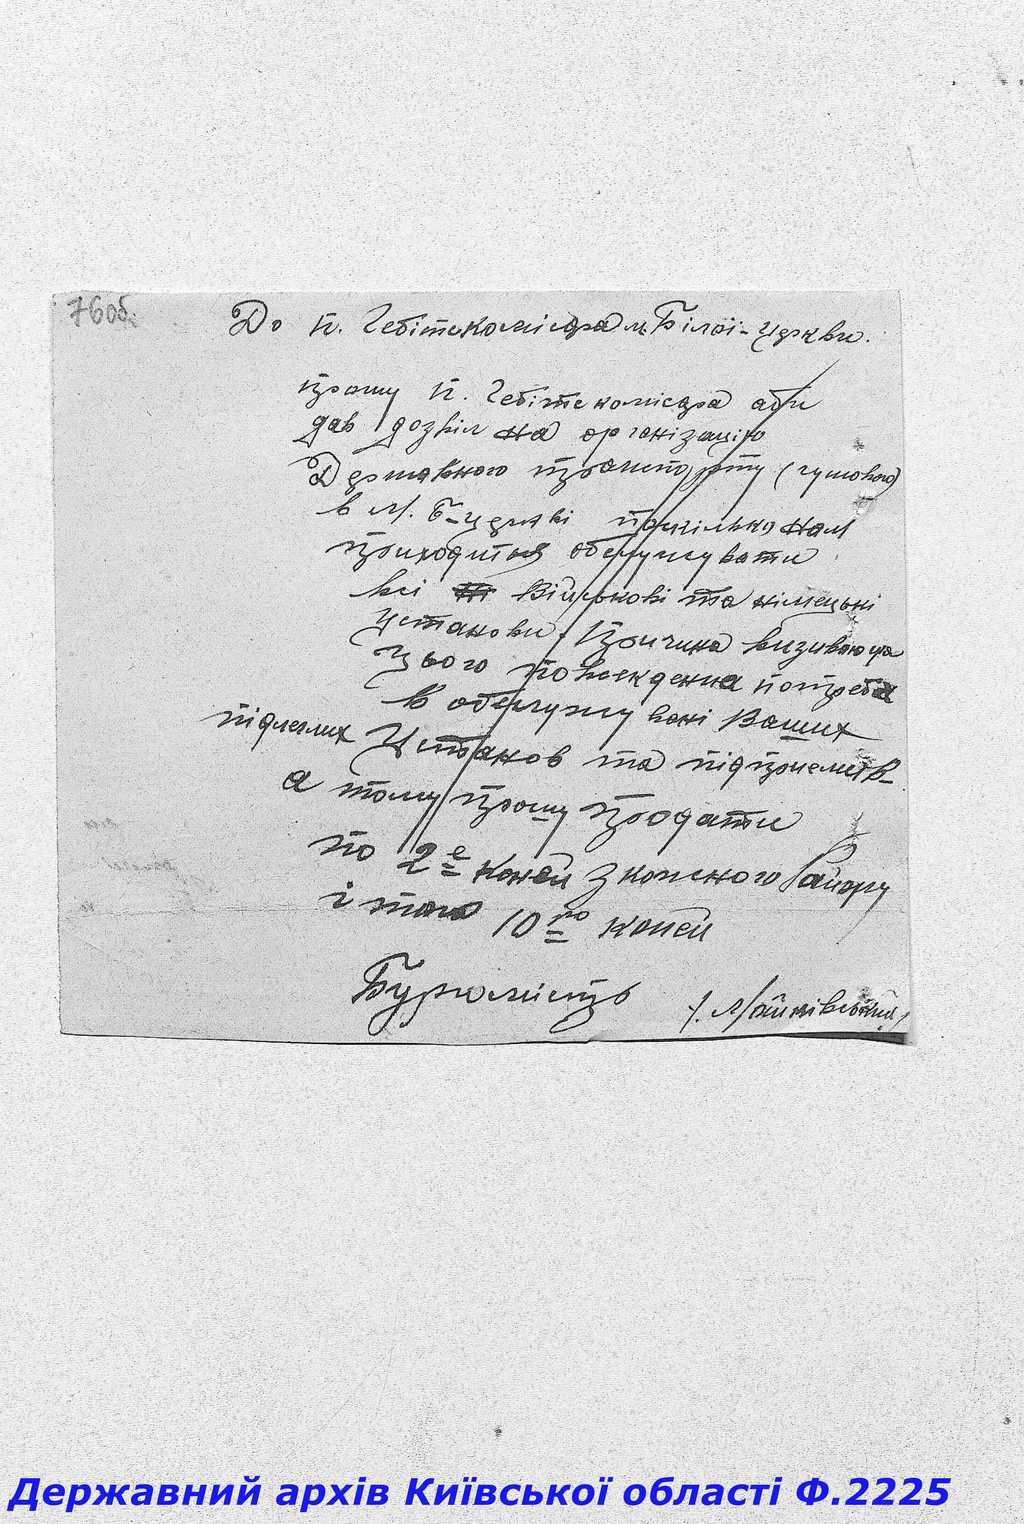 76об.
До п. Гебітскомісара м. Білої-Церкви.
Прошу п. Гебітскомісара аби
дав дозвіл на організацію
Державного транспорту (гужового)
в м. Б-Церкві поскільки нам
приходиться обслуговувати
всі Військові та німецькі
Установи. Причина визиваюча
цього повсякденна потреба
в обслугуванні Ваших
підлеглих Установ та підприємств
а тому прошу продати
по 2е коней з кожного Району
і того 10ро коней
Бургомістр
Державний архів Київської області Ф.2225